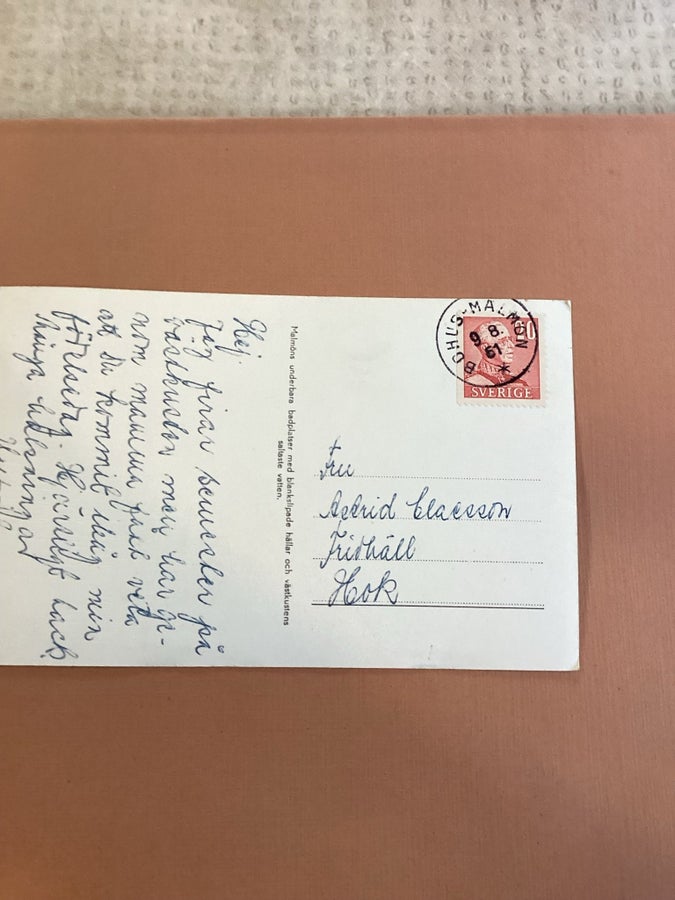 Hej
Jag firar semester på
västkusten men har ge-
nom mamma fått veta
att Du kommit ihåg min
födelsedag. Hjärtligt tack!
Många hälsningar
Malmöns underbara badplatser med blankslipade hällar och västkustens
saltaste vatten.
BOHUS-MALMÖN
9. 8.
61
SVERIGE
Fru
Astrid Claesson
Fridhäll
Hok